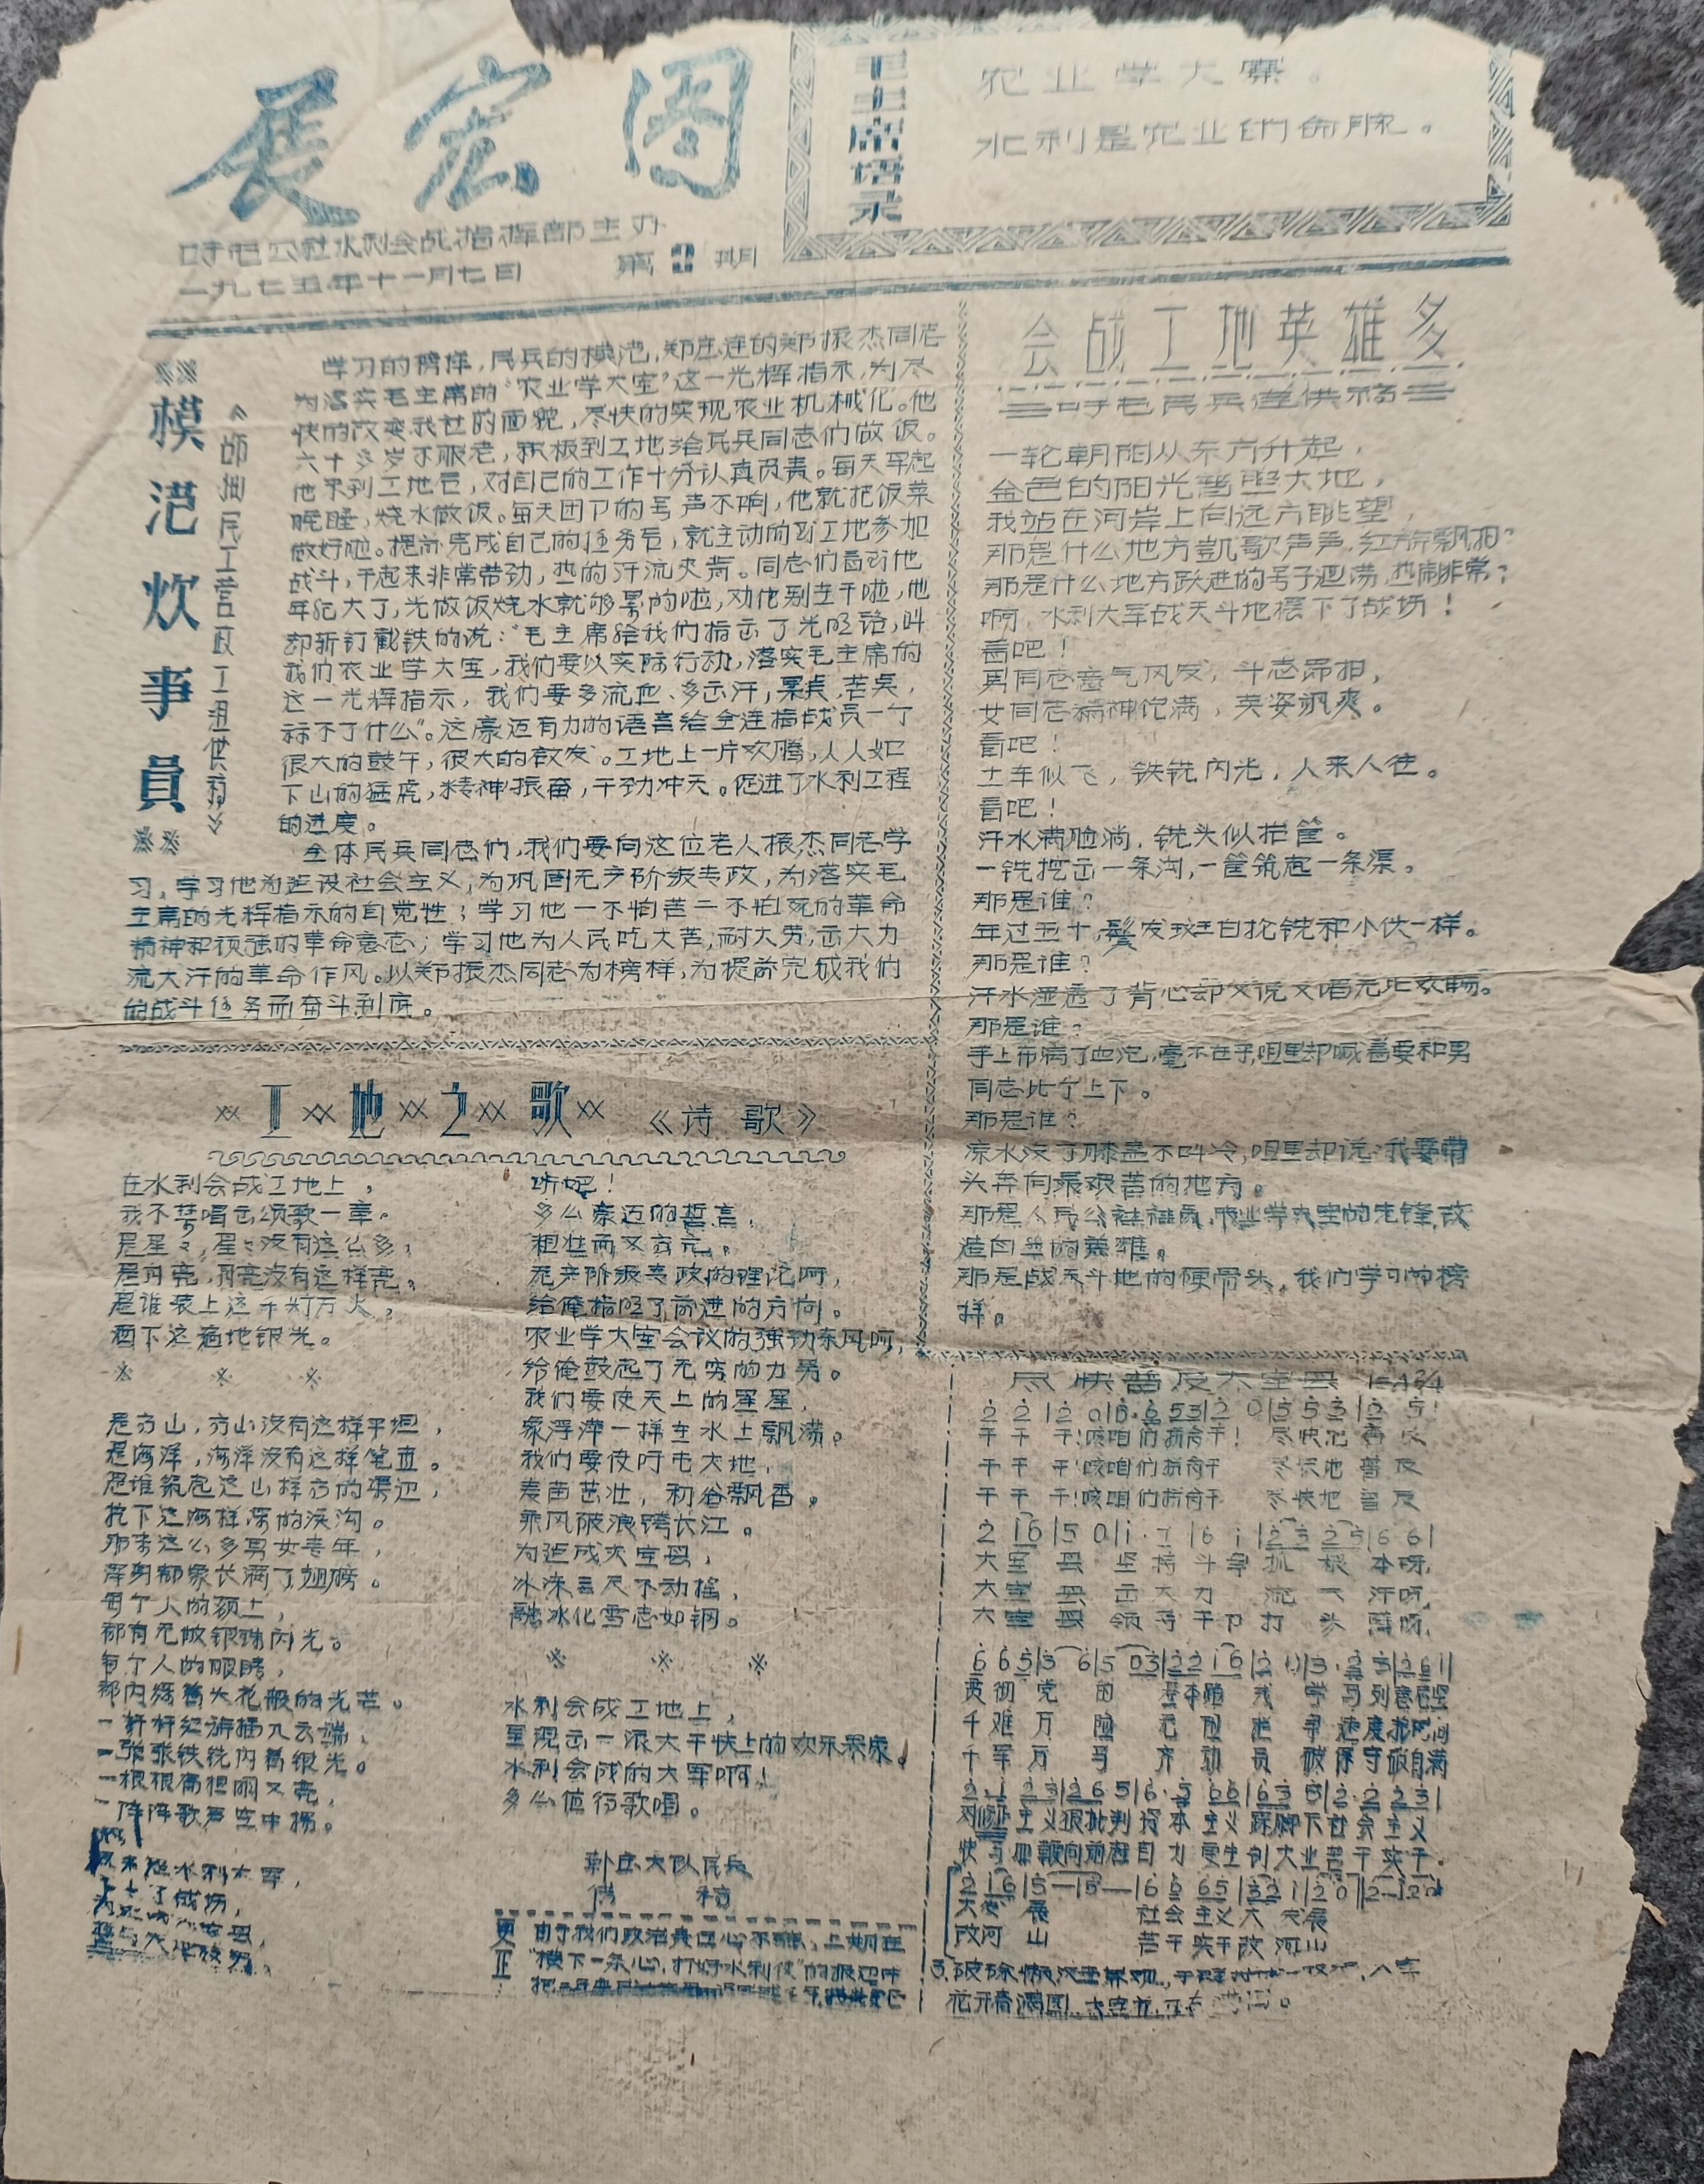 展宏图
吁屯公社水利会战指挥部主办
一九七五年十一月七日 第 期
毛主席语录
农业学大寨。
水利是农业的命脉。
模范炊事員
《师拙民工营政工组供稿》
学习的榜样，民兵的模范，郑庄连的郑振杰同志
为落实毛主席的“农业学大寨”这一光辉指示，为尽
快的改变我社的面貌，尽快的实现农业机械化。他
六十多岁不服老，积极到工地给民兵同志们做饭。
他来到工地后，对自己的工作十分认真负责。每天早起
晚睡，烧水做饭。每天团卩的号声不响，他就把饭菜
做好啦。提前完成自己的任务后，就主动的到工地参加
战斗，干起来非常带劲，热的汗流夹背。同志们看到他
年纪大了，光做饭烧水就够累的啦，劝他别在干啦，他
却斩钉截铁的说：“毛主席给我们指示了光明路，叫
我们农业学大寨，我们要以实际行动，落实毛主席的
这一光辉指示，我们要多流血、多出汗，累点，苦点，
标不了什么”。这豪迈有力的语言给全连指战员一个
很大的鼓午，很大的啟发。工地上一片欢腾，人人如
下山的猛虎，精神振奋，干劲冲天。促进了水利工程
的进度。
全体民兵同志们，我们要向这位老人振杰同志学
习，学习他为建设社会主义，为巩固无产阶级专政，为落实毛
主席的光辉指示的自觉性；学习他一不怕苦二不怕死的革命
精神和顽强的革命意志；学习他为人民吃大苦，耐大劳，出大力
流大汗的革命作风。以郑振杰同志为榜样，为提前完成我们
的战斗任务而奋斗到底。
工地之歌 《诗歌》
在水利会战工地上，
我不禁唱出颂歌一章。
是星々，星々没有这么多，
是月亮，月亮没有这样亮。
是谁装上这千灯万火，
洒下这遍地银光。
是高山，高山没有这样平坦，
是海洋，海洋没有这样笔直。
是谁筑起这山样高的渠边，
挖下这海样深的深沟。
那来这么多男女老年，
浑身都象长满了翅膀。
每个人的额上，
都有无故银珠闪光。
每个人的眼睛，
都内烁着火花般的光芒。
一杆杆红旗插入云端，
一张张铁铣内着银光。
一根根高担明又亮，
一阵阵歌声空中扬。
水利大军，
上了战场，
听吧！
多么豪迈的誓言，
粗壮而又高亢。
无产阶级专政的理论呵，
给俺指明了前进的方向。
农业学大寨会议的强劲东风呵，
给俺鼓起了无穷的力另。
我们要使天上的星星，
象浮萍一样在水上飘漾。
我们要使吁屯大地，
麦苗茁壮，初谷飘香。
乘风破浪跨长江。
为建成大寨县，
冰冻三尺不动摇，
融冰化雪志如钢。
水利会战工地上，
呈现出一派大干快上的欢乐景象。
水利会战的大军啊！
多么值得歌唱。
大队民兵
供 稿
更正
由于我们政治责任心不强，上期在
“横下一条心，打好水利仗”的报道中
会战工地英雄多
吁屯民兵连供稿
一轮朝阳从东方升起，
金色的阳光普照大地，
我站在河岸上向远方眺望，
那是什么地方凱歌声声，红旗飘扬？
那是什么地方跃进的号子迴荡，热闹非常？
啊，水利大军战天斗地摆下了战场！
看吧！
男同志意气风发，斗志昂扬，
女同志精神饱满，英姿飒爽。
看吧！
土车似飞，铁铣闪光，人来人往。
看吧！
汗水满脸淌，铣头似撻筐。
一铣挖出一条沟，一筐筑起一条渠。
那是谁？
年过五十，鬓发斑白抡铣和小伙一样。
那是谁？
汗水湿透了背心却又说又唱无比欢畅。
那是谁？
手上布满了血泡，毫不在乎，咀里却喊着要和男
同志比个上下。
那是谁？
凉水没了膝盖不叫冷，咀里却说：我要带
头奔向最艰苦的地方。
那是人民公社社员，农业学大寨的先锋，改
造自然的英雄。
那是战天斗地的硬骨头，我们学习的榜
样。
尽快普及大寨县 1=A 2/4
干干干！咳咱们拚命干！ 尽快地普及
干干干！咳咱们拚命干 尽快地普及
干干干！咳咱们拚命干 尽快地普及
大寨县坚持斗争抓根本呀，
大寨县出大力流大汗呀，
大寨县领导干卩打头阵呀，
贯彻党的基本路线学马列
千难万险无阻拦
千军万马齐动员
主义狠批判资本主义踩脚下社会主义
快马加鞭向前赶自力更生创大业苦干实干。
社会主义大发展
改河山 苦干实干改河山